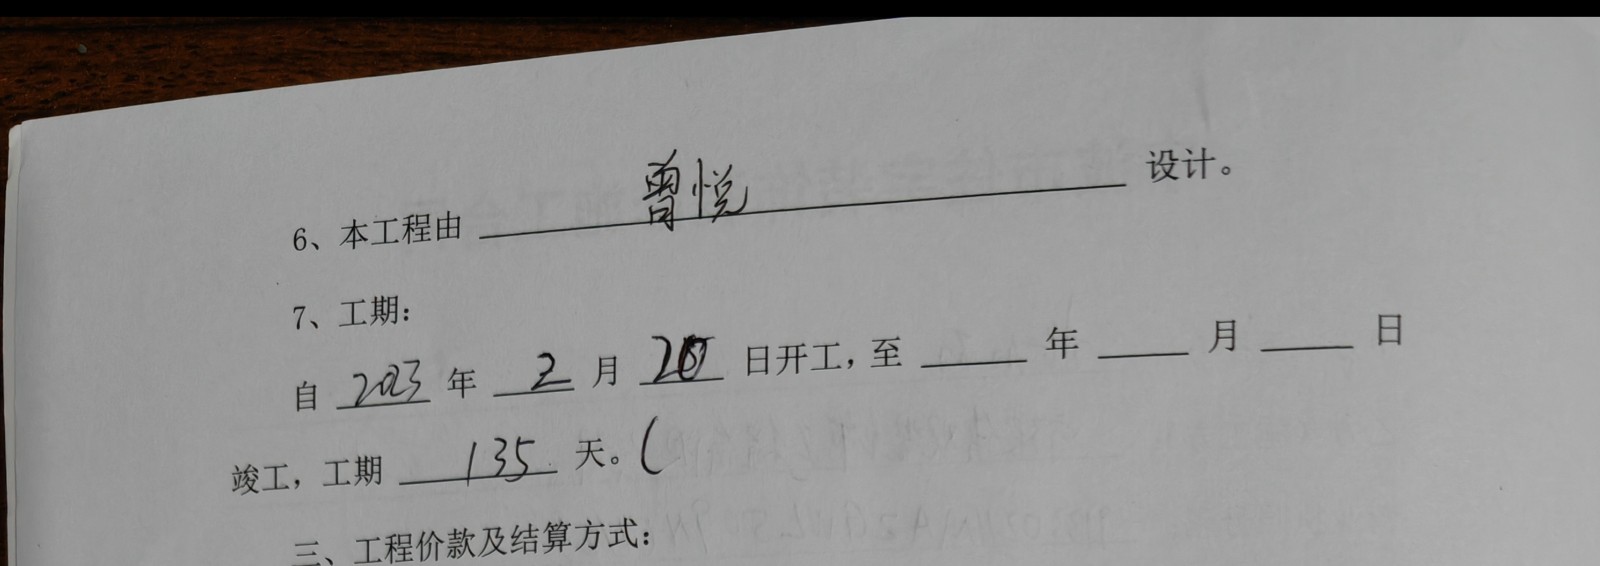 6、本工程由 曾悦 设计。
7、工期:
自 2023 年 2 月 20 日开工,至 年 月 日
竣工,工期 135 天。(
三、工程价款及结算方式: